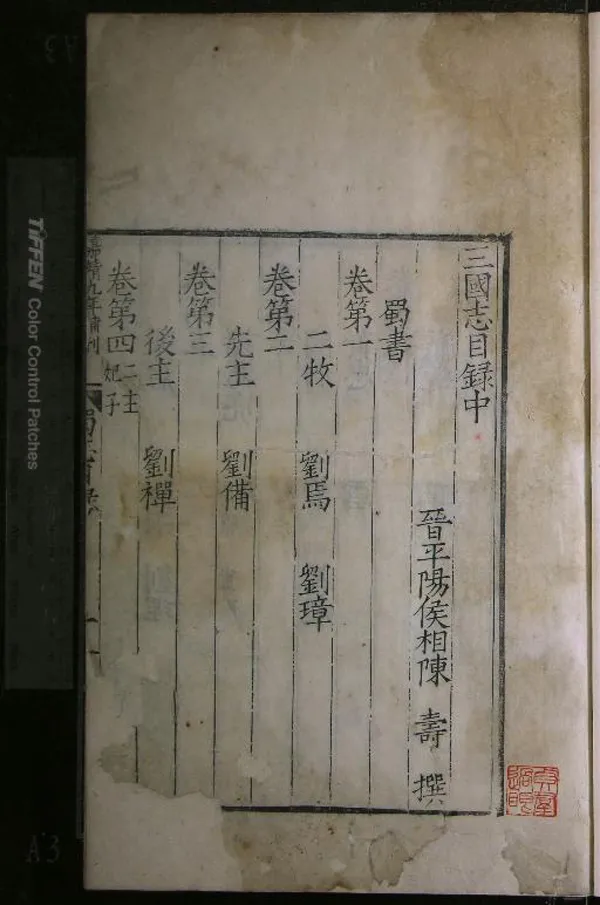 三國志目録中
晉平陽侯相陳壽撰
蜀書
卷第一
二牧 劉焉 劉璋
卷第二
先主 劉備
卷第三
後主 劉禪
卷第四 二主妃子
嘉靖九年補刊
TIFFEN Color Control Patches
A3
A3